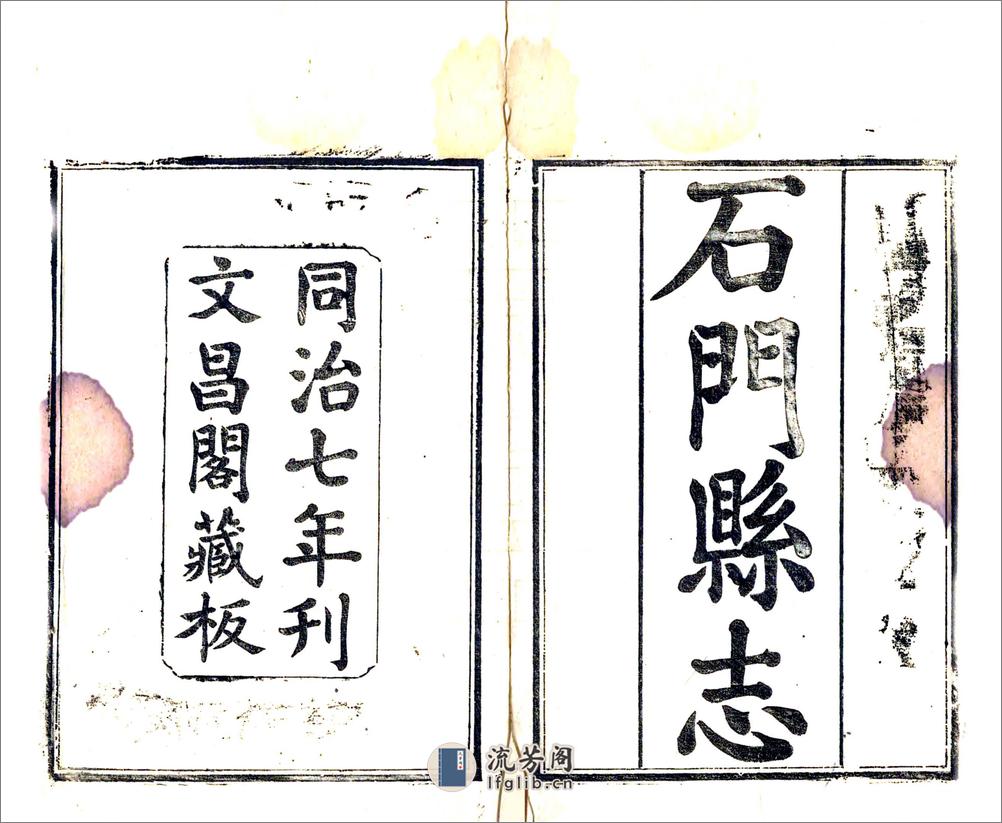 石門縣志
同治七年刊
文昌閣藏板
流芳阁
lfglib.cn